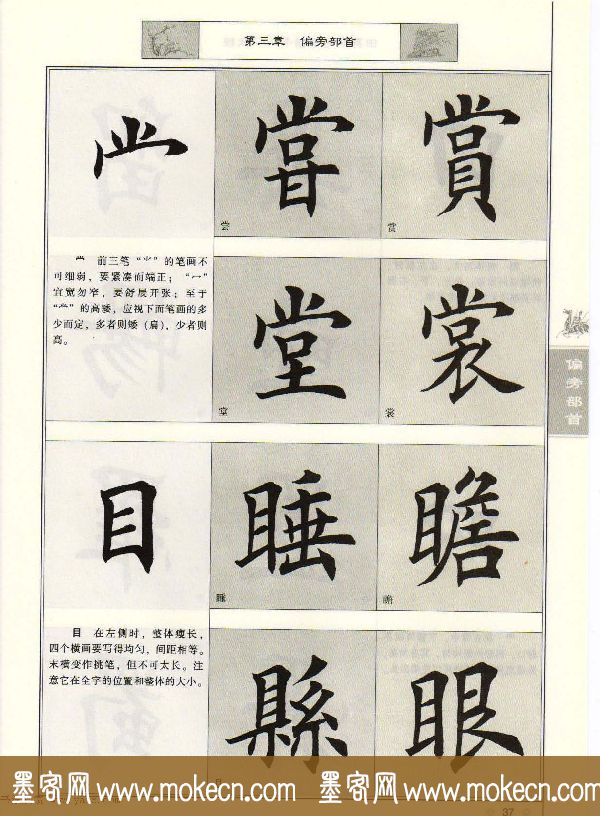 第三章 偏旁部首
尝 赏
尝
赏
前三笔“⺌”的笔画不
可细弱，要紧凑而端正；“冖”
宜宽勿窄，要舒展开张；至于
的高矮，应视下面笔画的多
少而定，多者则矮（扁），少者则
高。
堂 裳
堂
裳
偏旁部首
目 睡 瞻
睡
瞻
目 在左侧时，整体瘦长，
四个横画要写得均匀，间距相等。
末横变作挑笔，但不可太长。注
意它在全字的位置和整体的大小。
縣 眼
墨客网 www.mokecn.com 墨客网 www.mokecn.com
37